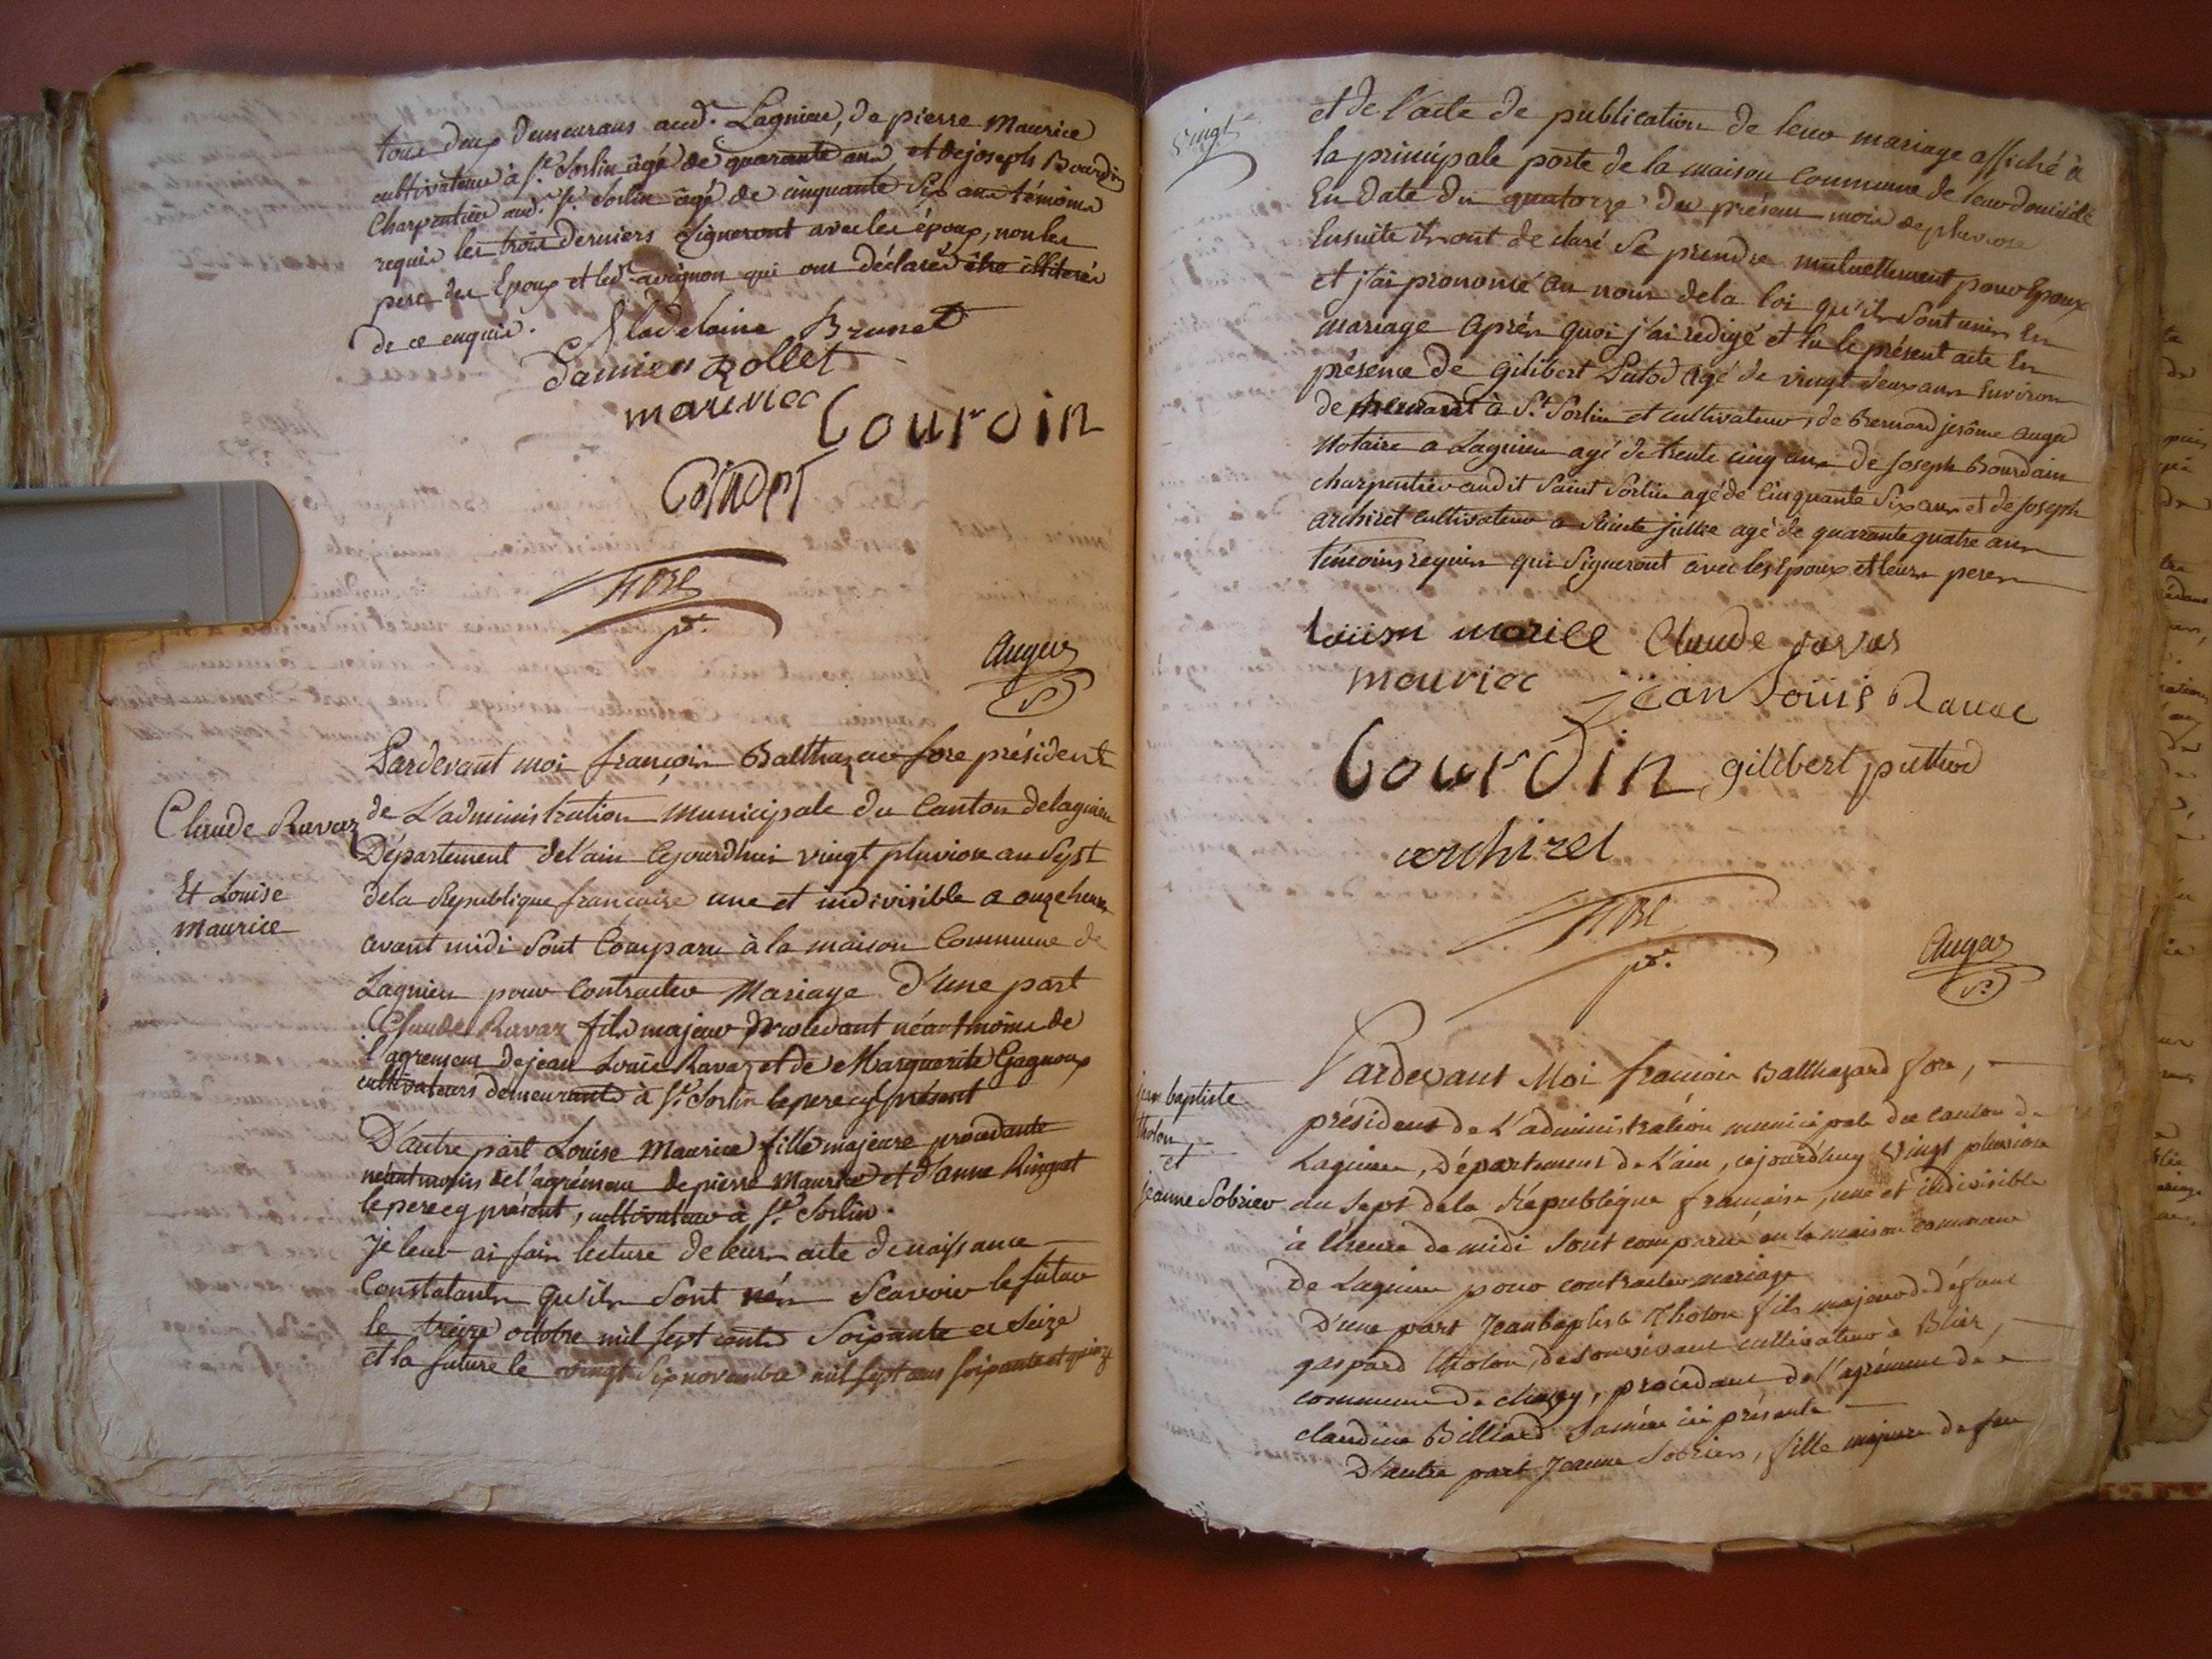 tous deux demeurans aud.t Lagnieu, de pierre Maurice
cultivateur à S.t Sorlin âgé de quarante ans et de joseph Bourdin
Charpentier aud.t S.t Sorlin âgé de cinquante six ans témoins
requis les trois derniers Signeront avec les époux, non les
pere des Epoux et led.t avignon qui ont déclarés être illiterés
de ce enquis.
Madelaine Brunet
damien Rollet
mauricc
Bourdin
fore
pt.
Auger
S
Pardevant moi françois Balthazar fore président
de L'administration Municipale du Canton de lagnieu
Département de l'ain Cejourdhui vingt pluviose an Sept
de la Republique française une et indivisible a onze heures
avant midi Sont Comparu à la maison Commune de
Lagnieu pour Contracter Mariage D'une part
Claude Ravaz
Et Louise
Maurice
Claude Ravaz fils majeur Procedant néantmoins de
l'agrement de jean Louis Ravaz et de Marguerite Gagnoux
cultivateurs demeurants à S.t Sorlin le pere cy présent
D'autre part Louise Maurice fille majeure procedante
néantmoins de l'agrément de pierre Maurice et d'anne Ringuet
le pere cy présent, cultivateur à S.t Sorlin.
Je leur ai fais lecture de leurs acte de naissance
Constatants qu'ils Sont nés Scavoir le futur
le treize octobre mil sept cents Soixante et Seize
et la future le vingt Six novembre mil sept cens soixante et quinze
Vingt
et de l'acte de publication de leur mariage affiché à
la principale porte de la maison Commune de leur domicile
En date du quatorze du présent mois de pluviose
Ensuite ils ont declaré Se prendre mutuellement pour Epoux
et j'ai prononcé au nom de la loi qu'ils Sont unis En
Mariage Après quoi j'ai redigé et lu le présent acte En
présence de gilibert Putod Agé de vingt deux ans Environ
de à S.t Sorlin et cultivateur, de Bernard jerôme Auger
Notaire a Lagnieu agé de trente cinq ans de Joseph Bourdain
charpentier audit Saint Sorlin agé de Cinquante Six ans et de joseph
archiret cultivateur a Sainte jullie agé de quarante quatre ans
témoins requis qui Signeront avec les Epoux et leurs peres
louisn morice Claude ravas
mauricc jean louis Ravac
Bourdin gilibert puttod
archiret
fore
pt.
Auger
S.
jean baptiste
tholon
et
jeanne Sobrier
Pardevant Moi francois Balthazard fore,
président de L'administration municipale du canton de
Lagnieu, Département de L'ain, cejourd'huy vingt pluviose
an Sept de la République francaise, une et indivisible
à l'heure de midi Sont comparus en la maison commune
De Lagnieu pour contracter mariage
D'une part Jean baptiste Tholon fils majeur de défunt
gaspard tholon, de son vivant cultivateur à Blier,
commune de chazey, procédant de l'agrément de
claudine Billiard Sa mère ici présente
D'autre part Jeanne Sobriers, fille majeure de feu